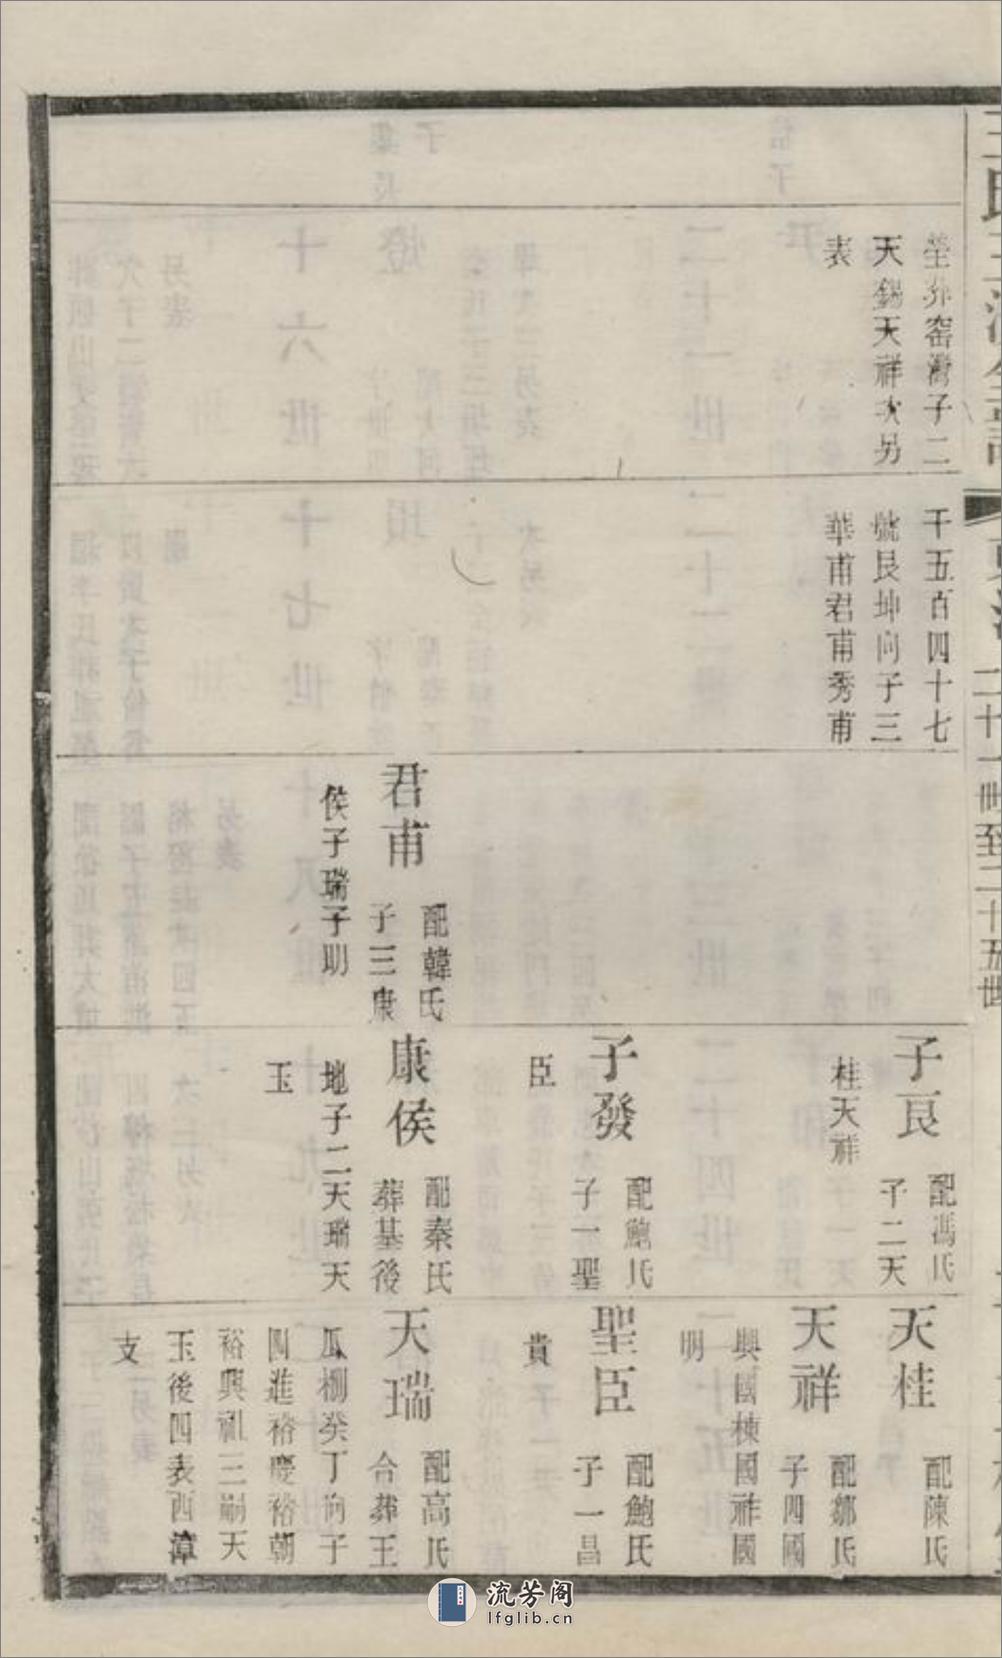 二十一世至二十五世
塋界窑灣子二
天錫天祥次另
表
千五百四十七
號艮坤向子三
華甫君甫秀甫
君甫
配韓氏
子三康
侯子瑞子明
子良
配馮氏
子二天
桂天祥
子發
配鮑氏
子一聖
臣
康侯
配秦氏
葬基後
地子二天瑞天
玉
天桂
配陳氏
天祥
配鄒氏
子四國
興國棟國祚國
明
聖臣
配鮑氏
子一昌
貴
天瑞
配高氏
合葬王
瓜棚癸丁向子
四進裕慶裕朝
裕興祖三嗣天
玉後四表西漳
支
流芳阁
lfglib.cn